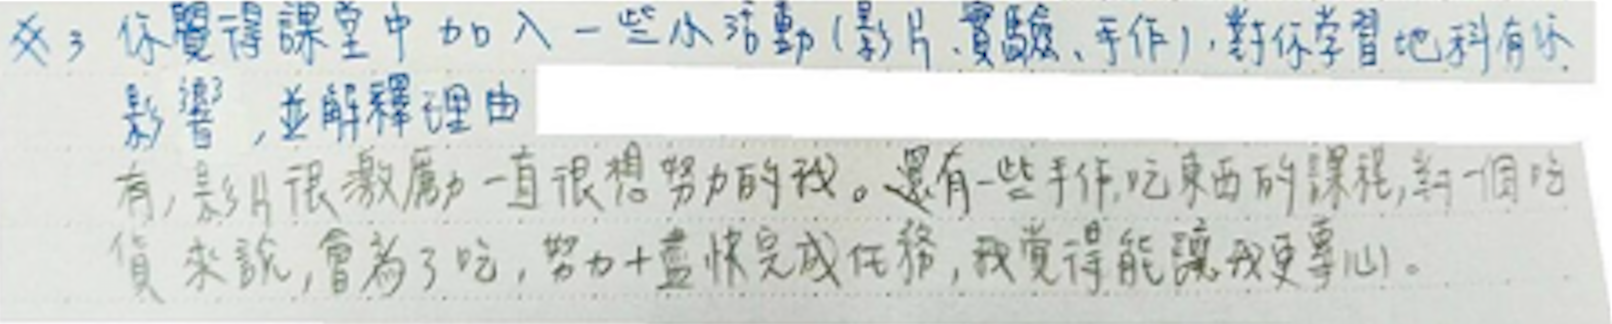 ※3 你覺得課堂中加入一些小活動(影片、實驗、手作),對你學習地科有何
影響,並解釋理由
有,影片很激勵一直很想努力的我。還有一些手作,吃東西的課程,對一個吃
貨來說,會為了吃,努力+盡快完成任務,我覺得能讓我更專心。